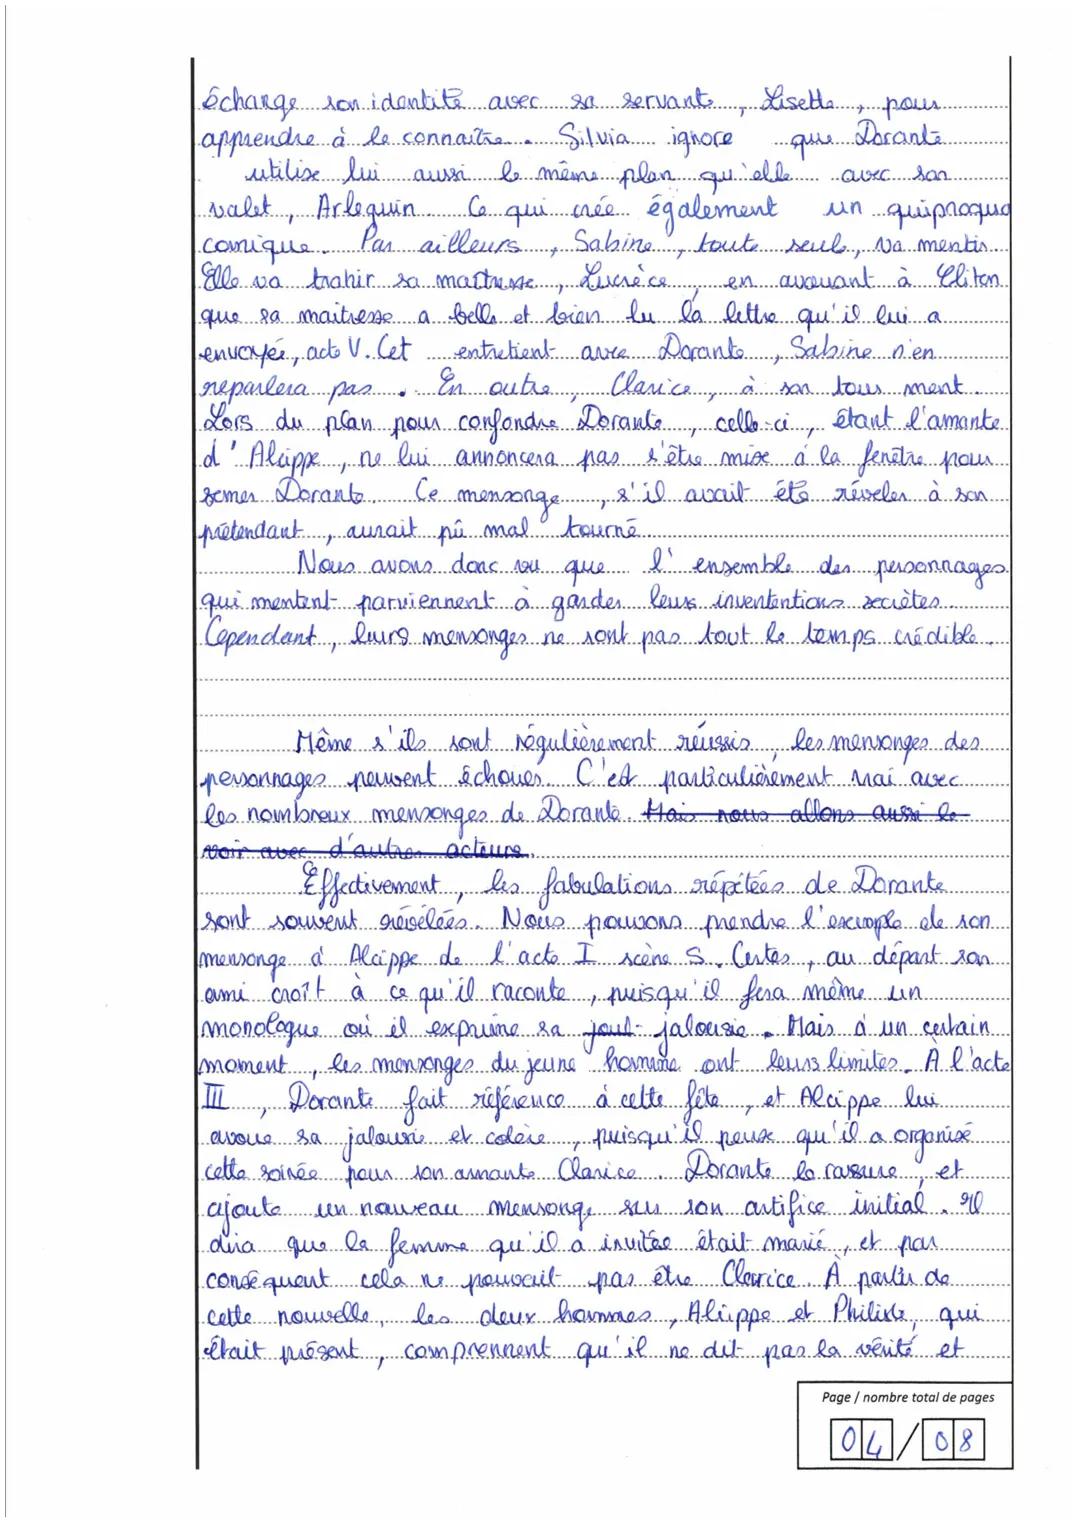 échange son identité avec sa servante, Lisette, pour
apprendre à le connaitre. Silvia ignore que Dorante
utilise lui aussi le même plan qu'elle avec son
valet, Arlequin. Ce qui crée également un quiproquo
comique. Par ailleurs, Sabine, toute seule, va mentir.
Elle va trahir sa maitresse, Lucrèce, en avouant à Cliton
que sa maitresse a belle et bien lu la lettre qu'il lui a
envoyée, acte V. Cet entretient avec Dorante, Sabine n'en
reparlera pas. En outre, Clarice, à son tour ment.
Lors du plan pour confondre Dorante, celle-ci, étant l'amante
d'Alcippe, ne lui annoncera pas s'être mise à la fenêtre pour
semer Dorante. Ce mensonge, s'il avait été révéler à son
prétendant, aurait pû mal tourné.
Nous avons donc vu que l'ensemble des personnages
qui mentent parviennent à garder leurs invententions secrètes.
Cependant, leurs mensonges ne sont pas tout le temps crédible.
Même s'ils sont régulièrement réussis, les mensonges des
personnages peuvent échouer. C'est particulièrement vrai avec
les nombreux mensonges de Dorante. Mais nous allons aussi le
voir avec d'autres acteurs.
Effectivement, les fabulations répétées de Dorante
sont souvent révélées. Nous pouvons prendre l'exemple de son
mensonge à Alcippe de l'acte I scène 5. Certes, au départ son
ami croît à ce qu'il raconte, puisqu'il fera même un
monologue où il exprime sa jalousie. Mais à un certain
moment, les mensonges du jeune homme ont leurs limites. À l'acte
III, Dorante fait référence à cette fête, et Alcippe lui
avoue sa jalousie et colère, puisqu'il pense qu'il a organisé
cette soirée pour son amante Clarice. Dorante le rassure, et
ajoute un nouveau mensonge sur son artifice initial. Il
dira que la femme qu'il a invitée était marié, et par
conséquent cela ne pouvait pas être Clarice. À partir de
cette nouvelle, les deux hommes, Alcippe et Philiste, qui
était présent, comprennent qu'il ne dit pas la vérité et
Page / nombre total de pages
04/08